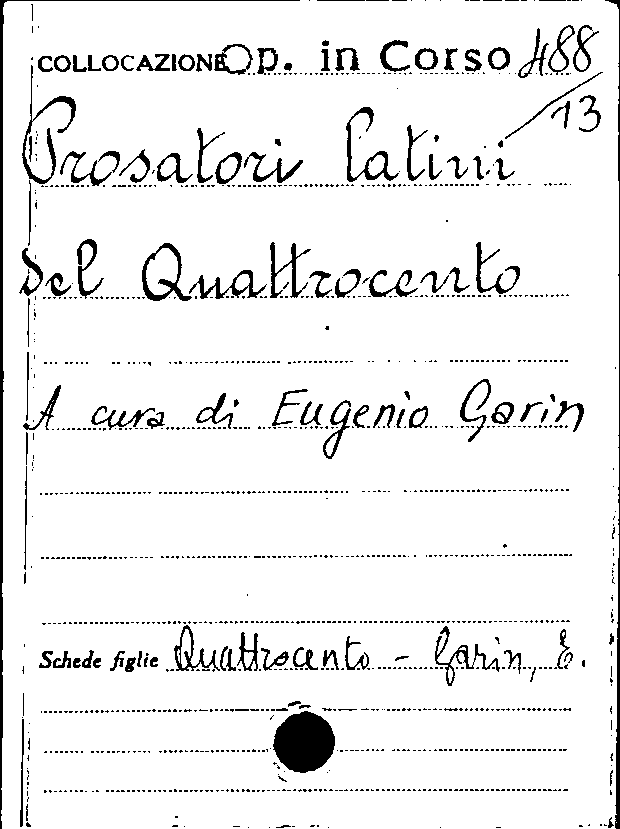 COLLOCAZIONE Op. in Corso 488/13
Prosatori latini
del Quattrocento
A cura di Eugenio Garin
Schede figlie Quattrocento - Garin, E.